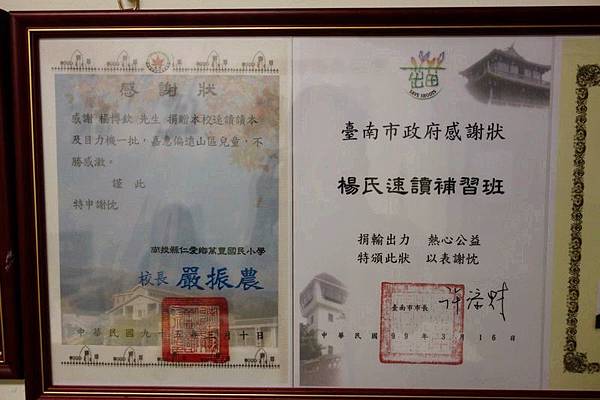 感謝狀
感謝 楊博欽 先生 捐贈本校速讀讀本
及目力機一批，嘉惠偏遠山區兒童，不
勝感激。
謹 此
特申謝忱
南投縣仁愛鄉萬豐國民小學
校長 嚴振農
中華民國九十
十日
臺南市政府感謝狀
楊氏速讀補習班
捐輸出力 熱心公益
特頒此狀 以表謝忱
臺南市市長 許添財
中華民國 99 年 3 月 16 日